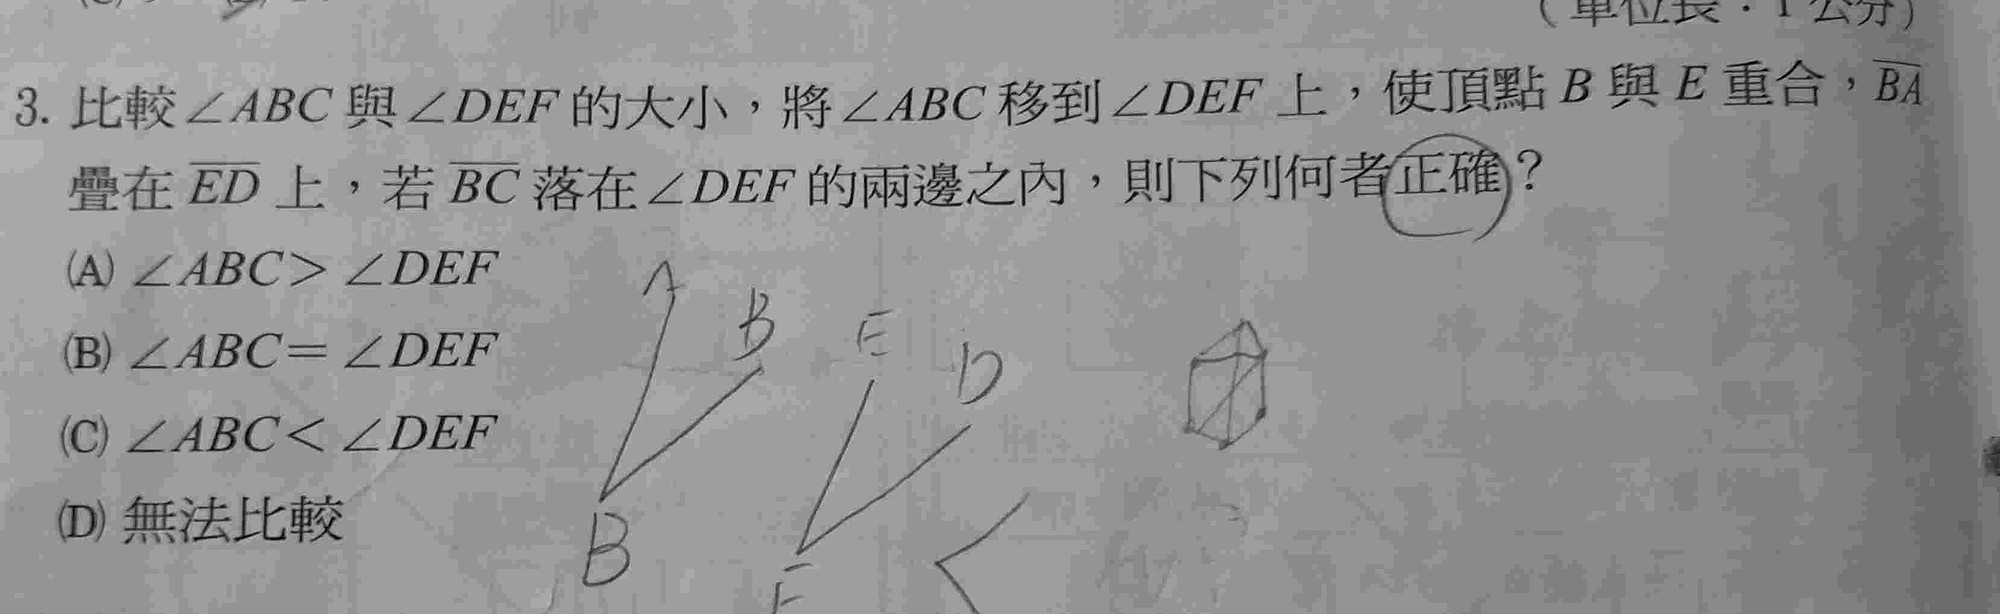 (單位長：1公分)
3. 比較∠ABC與∠DEF的大小，將∠ABC移到∠DEF上，使頂點B與E重合，BA
疊在ED上，若BC落在∠DEF的兩邊之內，則下列何者正確？
(A) ∠ABC> ∠DEF
(B) ∠ABC= ∠DEF
(C) ∠ABC< ∠DEF
(D) 無法比較
A B E D
B